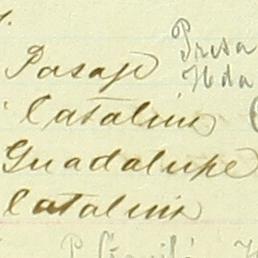 Presa
Pasaje Hda
Catalina
Guadalupe
Catalina